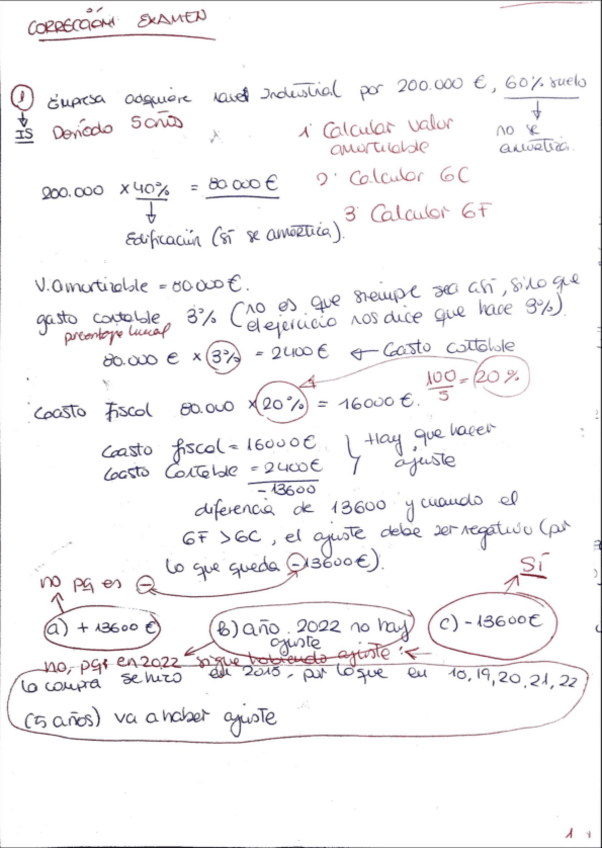 CORRECCIÓN EXAMEN
① Empresa adquiere nave Industrial por 200.000 €, 60% suelo
IS Período 5 años
no se amortiza.
1. Calcular valor amortizable
2. Calcular GC
3. Calcular GF
200.000 x 40% = 80.000 €
Edificación (sí se amortiza).
V. amortizable = 80.000 €.
gasto contable 3% (no es que siempre sea así, sino que
porcentaje lineal el ejercicio nos dice que hace 3%).
80.000 € x 3% = 2400 € ← Gasto contable
100/5 = 20%
Gasto Fiscal 80.000 x 20% = 16000 €.
Gasto fiscal = 16000 € Hay que hacer
Gasto Contable = 2400 € ajuste
-13600
diferencia de 13600 y cuando el
GF > GC, el ajuste debe ser negativo (por
lo que queda -13600 €).
no pq es - SÍ
a) + 13600 € b) año 2022 no hay ajuste c) - 13600 €
no, pq en 2022 sigue habiendo ajuste:
la compra se hizo en 2018, por lo que en 18, 19, 20, 21, 22
(5 años) va a haber ajuste
1